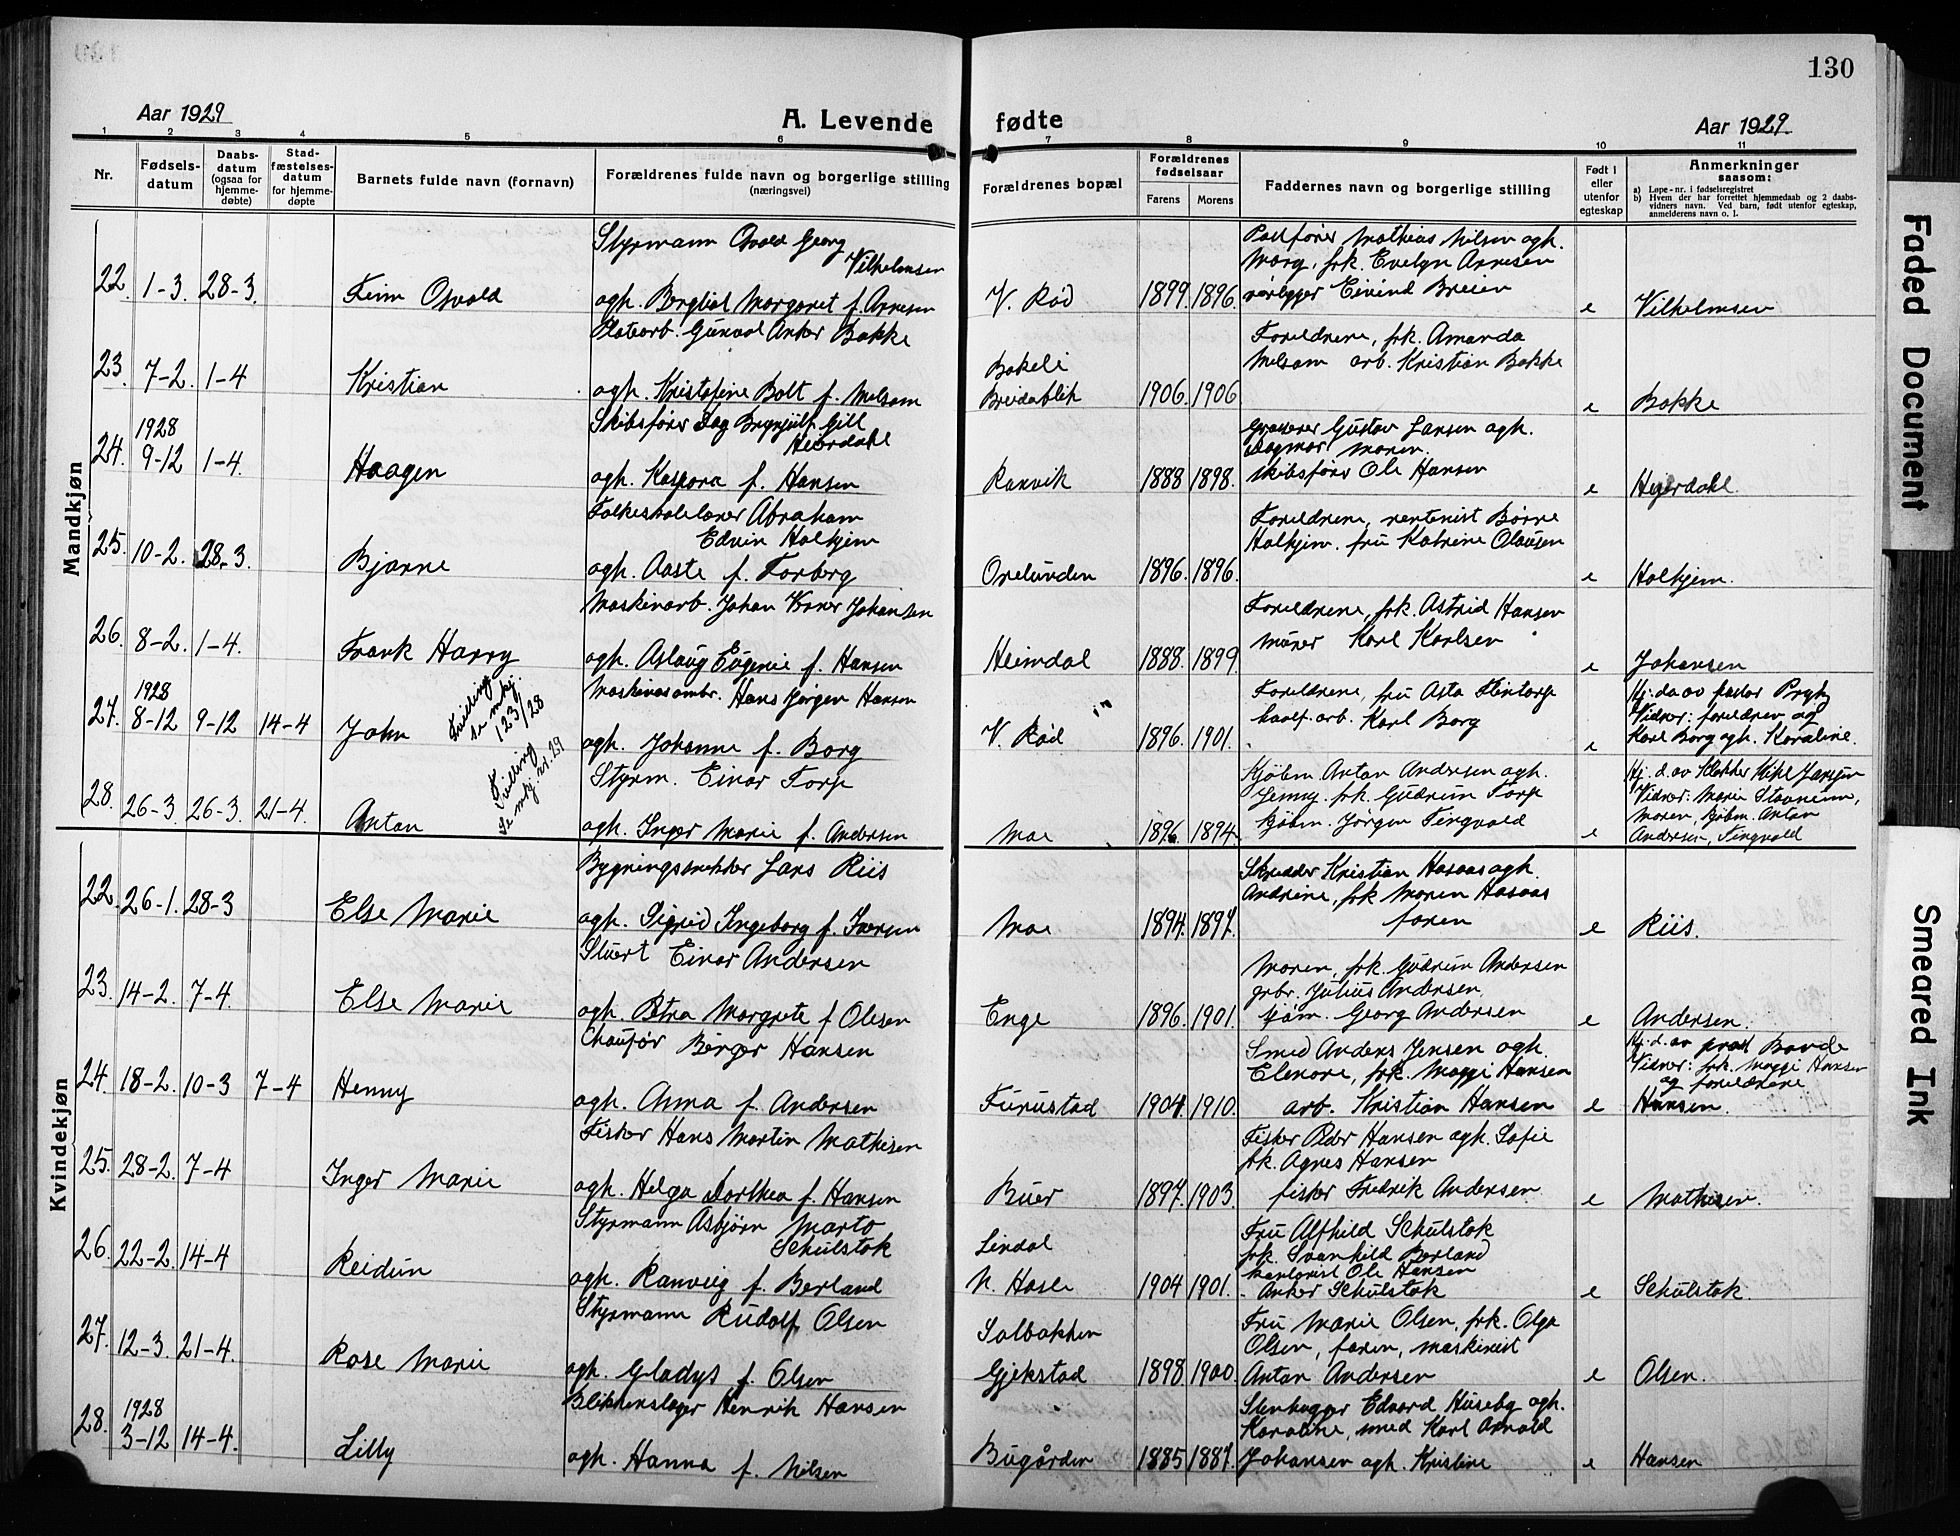 130
Aar 1929
A. Levende fødte
Aar 1929
1 2 3 4 5 6 7 8 9 10 11
Nr.
Fødsels-
datum
Daabs-
datum
(ogsaa for
hjemme-
døbte)
Stad-
fæstelses-
datum
for hjemme-
døpte
Barnets fulde navn (fornavn)
Forældrenes fulde navn og borgerlige stilling
(næringsvei)
Forældrenes bopæl
Forældrenes
fødselsaar
Farens Morens
Faddernes navn og borgerlige stilling
Født i
eller
utenfor
egteskap
Anmerkninger
saasom:
a) Løpe-nr. i fødselsregistret
b) Hvem der har forrettet hjemmedaab og 2 daabs-
vidners navn. Ved barn, født utenfor egteskap,
anmelderens navn o. l.
Mandkjøn
22. 1-3. 28-3.
Finn Osvald
Styrmann Osvald Georg
Vilhelmsen
ogh. Bergliot Margaret f. Arnesen
V. Rød
1899. 1896.
Mathias Nilsen ogh.
Marg, frk. Evelyn Arnesen
rørlegger Eivind Bresen
e
Vilhelmsen
23. 7-2. 1-4
Kristian
Gunval Anker Bakke
ogh. Kristofine Bolt f. Melsom
Bakeli
Breidablik
1906. 1906
Forældrene, frk. Amanda
Melsom arb. Kristian Bakke
e
Bakke
24. 1928
9-12 1-4.
Haagen
Skibsfører Dag Brynjulf Gill
Heierdahl
ogh. Kaspara f. Hansen
Ranvik
1888 1898.
Grosserer Gustav Larsen ogh.
Dagmar moren.
skibsfører Ole Hansen
e
Heierdahl.
25. 10-2. 28-3.
Bjarne
Folkeskolelærer Abraham
Edvin Holkjem
ogh. Aaste f. Forberg
Orelunden
1896. 1896.
Forældrene, rentenist Børre
Holkjem. fru Katrine Olausen
e
Holkjem.
26. 8-2. 1-4.
Frank Harry
Maskinarb. Johan Werner Johansen
ogh. Aslaug Eugenie f. Hansen
Heimdal
1888. 1899.
Forældrene, frk. Astrid Hansen
murer Karl Karlsen
e
Johansen
27. 1928
8-12 9-12 14-4
John
tvilling
se mkj.
123/28
Hans Jørgen Hansen
ogh. Johanne f. Borg
V. Rød
1896. 1901.
Forældrene, fru Asta Flintorp
hvalf. arb. Karl Borg
e
Hj. da av pastor Bryhn
Vidner: forældren og
Karl Borg ogh. Karoline.
28. 26-3. 26-3. 21-4.
Anton
Tvilling
Se mkj. nr. 29
Styrm. Einar Torp
ogh. Inger Marie f. Andersen
Moe
1896. 1894.
Kjøbm. Anton Andersen ogh.
Jenny. frk. Gudrun Torp
kjøbm. Jørgen Tingvold
e
Hj. d. av
Vidner: Marie Stavnum,
moren, kjøbm. Anton
Andersen, Tingvold
Kvindekjøn
22. 26-1. 28-3
Else Marie
Bygningssnekker Lars Riis
ogh. Sigrid Ingeborg f. Iversen
Moe
1894. 1897.
Skrædder Kristian Hasaas ogh.
Andrine, frk Maren Hasaas
faren
e
Riis.
23. 14-2. 7-4.
Else Marie
Stuert Einar Andersen
ogh. Petra Margrete f Olesen
Enge
1896. 1901.
Moren, frk. Gudrun Andersen
grbr. Julius Andersen,
sjøm. Georg Andersen
e
Andersen.
24. 18-2. 10-3 7-4
Henny
Chaufør Birger Hansen
ogh. Anna f. Andersen
Furustad
1904. 1910.
Smed Anders Jensen ogh.
Elenore, frk. Maggi Hansen
arb. Kristian Hansen
e
Hj. d. av prost Bovde
Vidner: frk. Maggi Hansen
og forældrene
Hansen.
25. 28-2. 7-4
Inger Marie
Fisker Hans Martin Mathisen
ogh. Helga Dorthea f. Hansen
Buer
1897. 1903.
Fisker Peder Hansen ogh. Sofie
frk. Agnes Hansen
fisker Fredrik Andersen
e
Mathisen.
26. 22-2. 14-4
Reidun
Styrmann Asbjørn Marto
Schulstok
ogh. Ranveig f. Berland
Lindal
N. Hasle
1904 1901.
Fru Alfhild Schulstok
frk. Svanhild Berland
kontorist Ole Hansen
- Anker Schulstok
e
Schulstok.
27. 12-3. 21-4.
Rose Marie
Styrmann Rudolf Olsen
ogh. Gladys f. Olsen
Solbakken
Gjekstad
1898. 1900.
Fru Marie Olsen, frk. Olga
Olsen, faren, maskinist
Anton Andersen
e
Olsen.
28. 1928
3-12 14-4.
Lilly
Blikkenslager Henrik Hansen
ogh. Hanna f. Nilsen
Bugården
1885 1887.
Stenhugger Edvard Huseby ogh.
Karoline, smed Karl Arnold
Johansen ogh. Kristine
e
Hansen
Faded Document
Smeared Ink